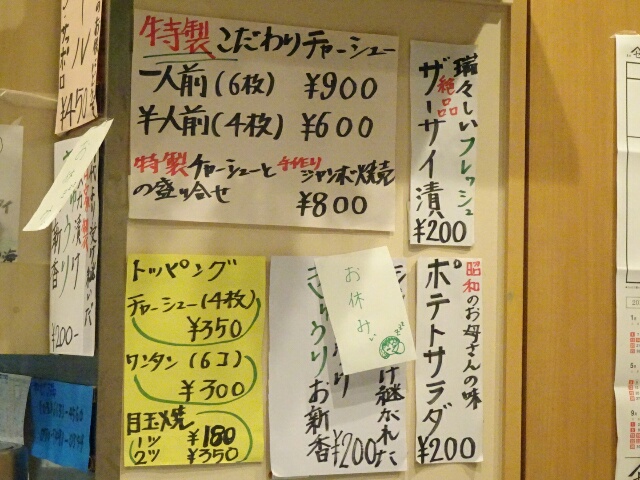 特製こだわりチャーシュー
一人前(6枚) ¥900
半人前(4枚) ¥600
特製チャーシューと手作りジャンボ焼売
の盛り合せ ¥800
瑞々しいフレッシュ
絶品
ザーサイ漬
¥200
トッピング
チャーシュー(4枚)
¥350
ワンタン(6コ)
¥300
目玉焼
1ツ ¥180
2ツ ¥350
お休み
け継がれた
きゅうりお新香
¥200
昭和のお母さんの味
ポテトサラダ
¥200
サッポロ
¥450
お新香
¥200-